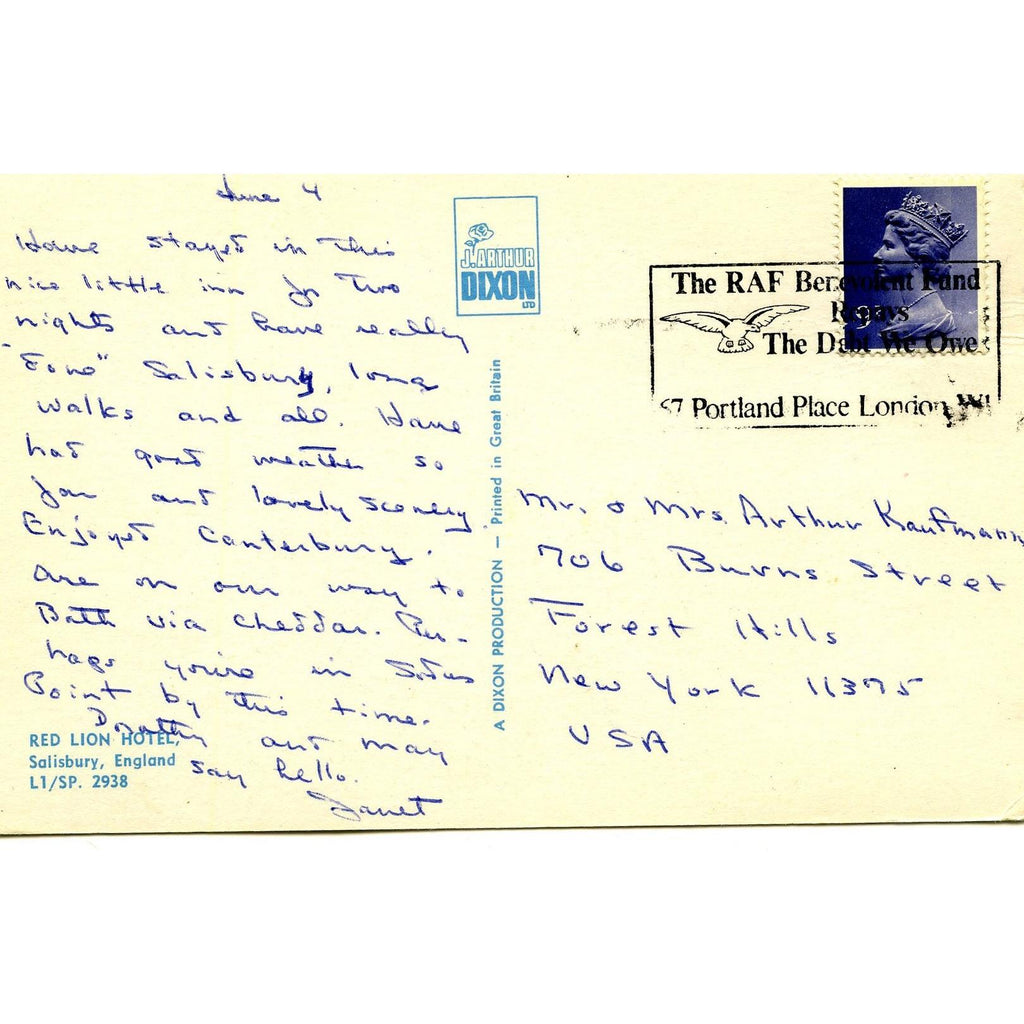 June 4
Have stayed in this
nice little inn for two
nights and have really
"done" Salisbury, long
walks and all. Have
had good weather so
far and lovely scenery.
Enjoyed Canterbury.
are on our way to
Bath via Cheddar. Per-
haps you're in
Point by this time.
Dorothy and may
say hello.
Janet
RED LION HOTEL,
Salisbury, England
L1/SP. 2938
J. ARTHUR
DIXON
LTD
A DIXON PRODUCTION — Printed in Great Britain
The RAF Benevolent Fund
Repays
The Debt We Owe
67 Portland Place London W1
Mr. & Mrs. Arthur Kaufmann
706 Burns Street
Forest Hills
New York 11375
USA